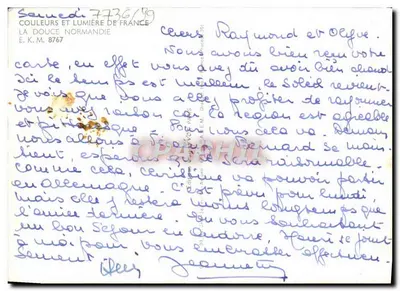 Samedi 7736/(9)
COULEURS ET LUMIÈRE DE FRANCE
LA DOUCE NORMANDIE
E. K. M. 8767
Chers Raymond et Olga.
Nous avons bien reçu votre
carte, en effet vous avez dû avoir bien chaud
Ici le temps est meilleur, le soleil revient.
Je vois que vous allez profiter de rayonner
vous avez raison car la région est agréable
et pittoresque. Pour nous cela va. Demain
nous allons à si Bernard se main-
tient, espérons qu'il sera raisonnable.
comme cela, Christine va pouvoir partir
en Allemagne. C'est prévu pour lundi
mais elle y restera moins longtemps que
l'année dernière. En vous souhaitant
un bon séjour en Andorre, Henri se joint
à moi pour vous embrasser affectueu-
sement
Jeannette